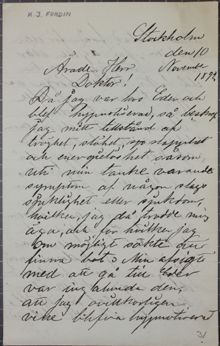 K. J. FORDIN
Stockholm
den 10
November
1892
Ärade Herr
Doktor!
Då jag var hos Eder och
blef hypnotiserad, så beskref
jag mitt tillstånd af
tröghet, slöhet, och slapphet
och energilöshet såsom
ett min tanke varande
symptom af någon slags
sjuklighet eller sjukdom,
hvilken jag då trodde mig
äga, och för hvilken jag
om möjligt sökte att
finna bot. Min afsigt
med att gå till Eder
var ingalunda den,
att jag ovillkorligen
ville blifva hypnotiserad